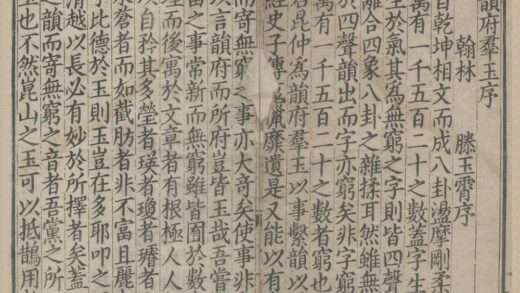 韻府羣玉序
翰林 滕玉霄序
自乾坤相文而成八卦盪摩剛柔
萬有一千五百二十之數蓋字生
生於氣其為無窮之字則皆四聲
離合四象八卦之雜揉耳然雖無
於四聲韻出而字亦窮矣非字窮
萬有一千五百二十之數者窮也
君昆仲為韻府羣玉以事繫韻
經史子傳獵靡遺是又能以有
而寄無窮之事亦大奇矣使事非
以言韻府而所府豈皆玉哉吾嘗
宙之事常新而無窮雖皆囿於數
理而後寓於文章者有根極人人
以自矜其多瑩者瑛者瓊者璿者
蒼者而如截肪者非不富且麗
子比德於玉則玉豈在多耶叩之
清越以長必有妙於所擇者矣蓋
之韻而寄無窮之音者吾黨之所
玉也不然崑山之玉可以抵鵲用